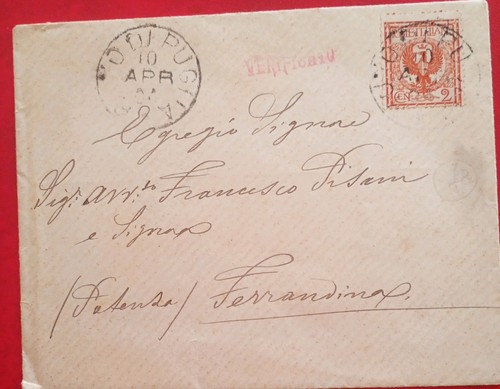 DI PUGLIA
10
APR
VERIFICATO
10
CENT. 2
Egregio Signore
Sig: Avv:to Francesco Pisani
e Signora
(Potenza) Ferrandina